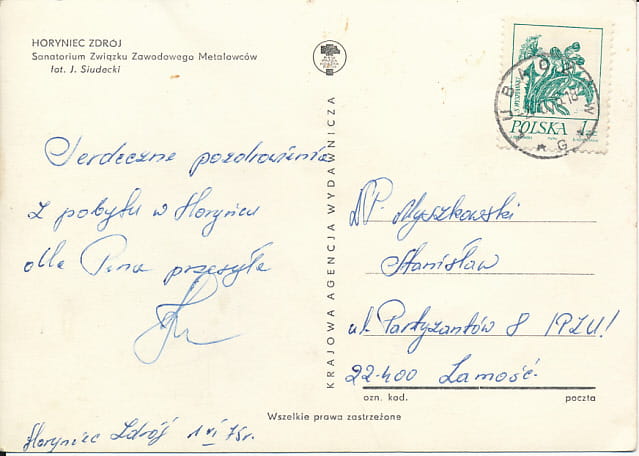 HORYNIEC ZDRÓJ
Sanatorium Związku Zawodowego Metalowców
fot. J. Siudecki
Serdeczne pozdrowienia
z pobytu w Horyńcu
dla Pana przesyła
Horyniec Zdrój 1 VI 75r.
KRAJOWA AGENCJA WYDAWNICZA
POLSKA 1
WP Myszkowski
Stanisław
ul. Partyzantów 8 /PZU!
22-400 Zamość
ozn. kod. poczta
Wszelkie prawa zastrzeżone